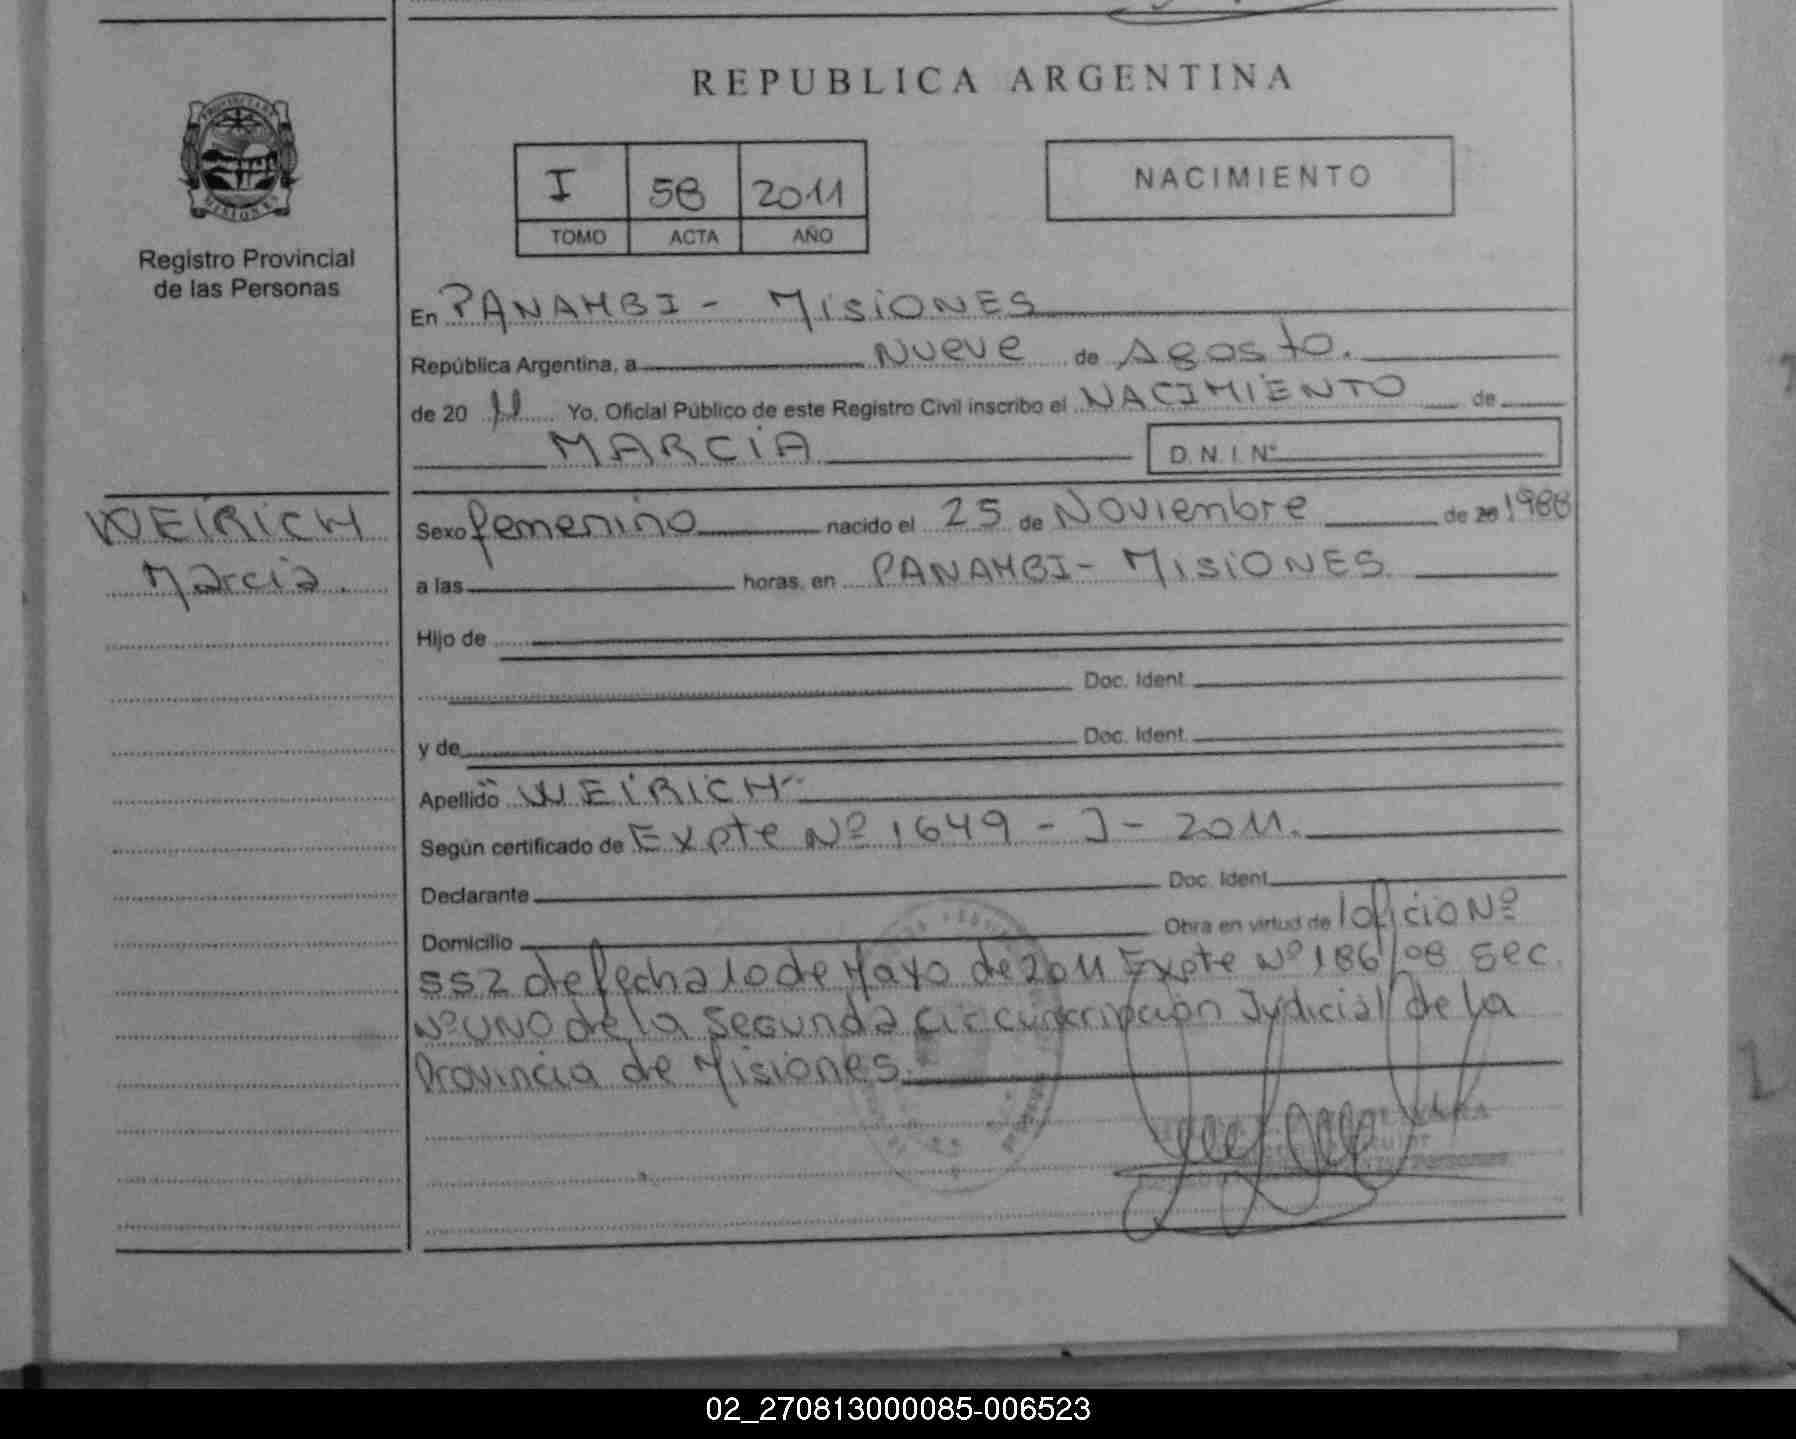 REPUBLICA ARGENTINA
I 58 2011
TOMO ACTA AÑO
NACIMIENTO
Registro Provincial
de las Personas
En PANAMBI - MISIONES
República Argentina, a Nueve de Agosto.
de 20 11 Yo, Oficial Público de este Registro Civil inscribo el NACIMIENTO de
MARCIA D.N.I. Nº
WEIRICH
Marcia.
Sexo femenino nacido el 25 de Noviembre de 20 1988
a las horas, en PANAMBI - MISIONES
Hijo de
Doc. Ident.
y de Doc. Ident.
Apellido WEIRICH
Según certificado de Expte Nº 1649 - J - 2011.
Declarante Doc. Ident.
Domicilio Obra en virtud de oficio Nº
552 de fecha 10 de Mayo de 2011 Expte Nº 186/08 Sec.
Nº UNO de la Segunda Circunscripción Judicial de la
Provincia de Misiones.
02_270813000085-006523